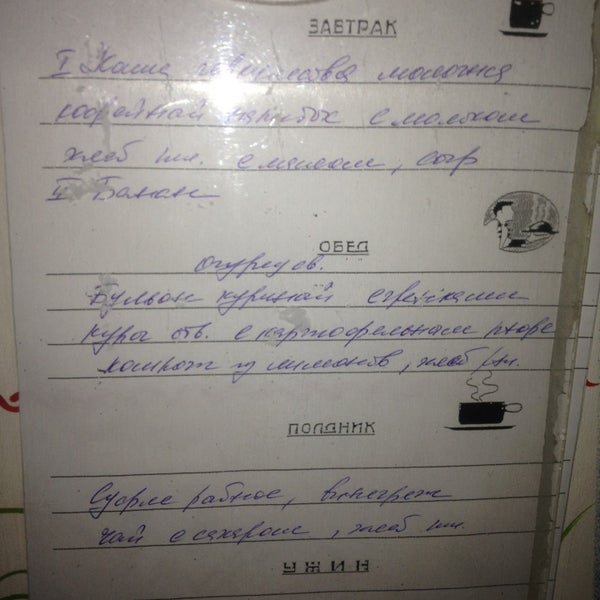 ЗАВТРАК
I Каша молочная
кофейный напиток с молоком
хлеб пш. с маслом, сыр
II Банан
ОБЕД
Огурец св.
Бульон куриный с гренками
Куры отв. с картофельным пюре
компот из лимонов, хлеб рж.
ПОЛДНИК
Суфле рыбное, винегрет
Чай с сахаром, хлеб пш.
УЖИН